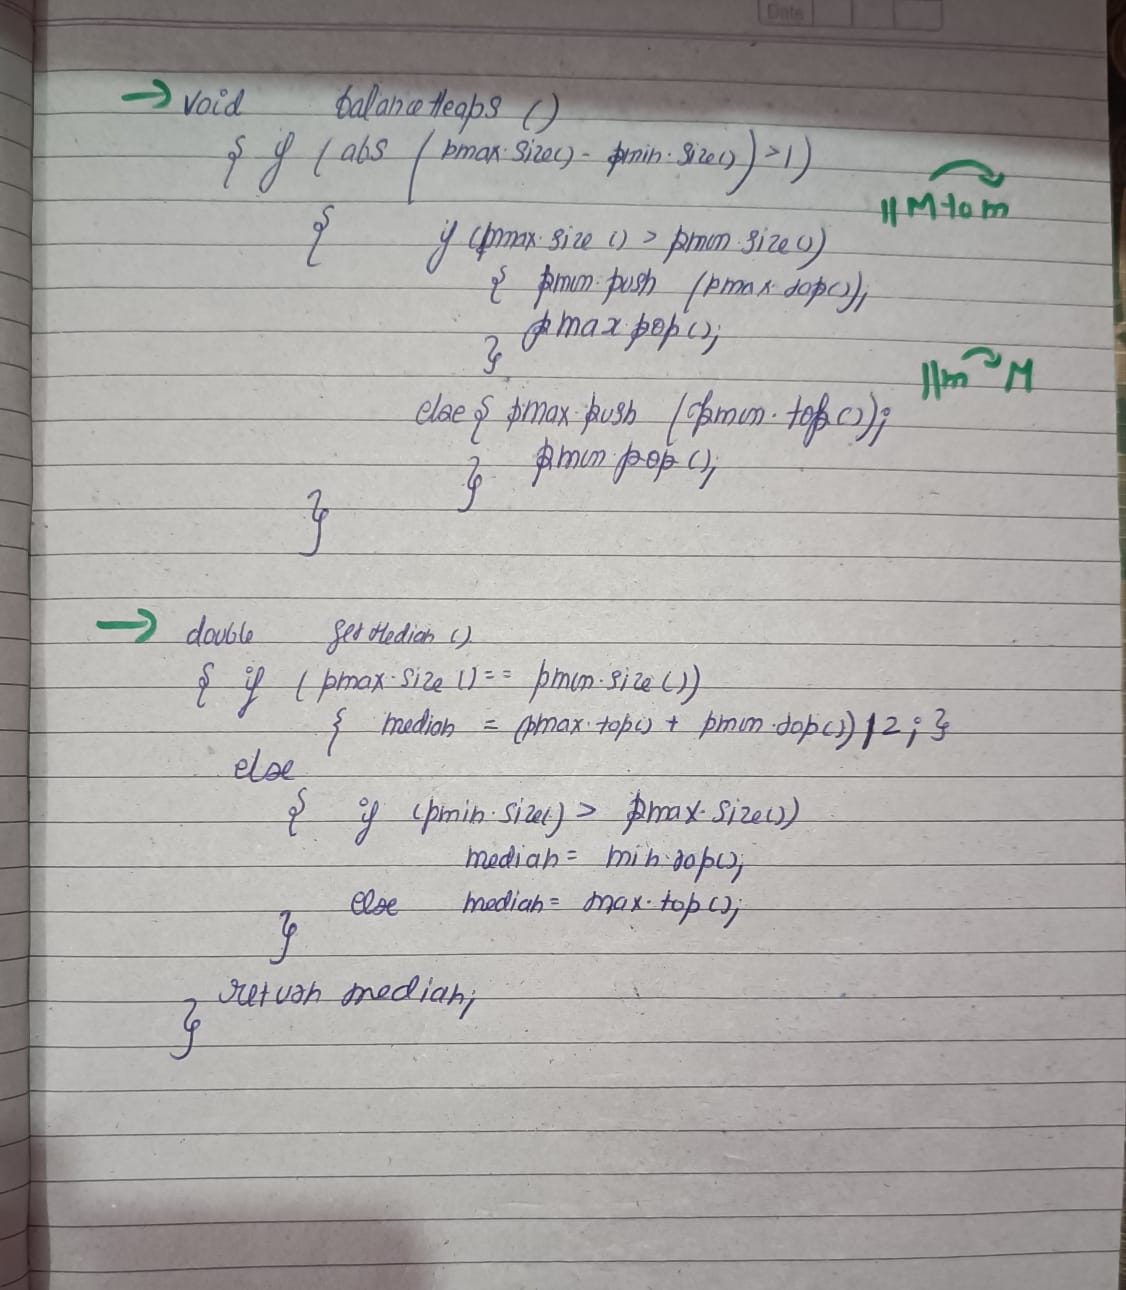 Date
→ void balanceHeaps ()
{ if (abs (pmax.size() - pmin.size()) > 1)
// M to m
{ if (pmax.size () > pmin.size())
{ pmin.push (pmax.top());
pmax.pop();
}
// m M
else { pmax.push (pmin.top());
pmin.pop();
}
}
→ double getMedian ()
{ if (pmax.size () == pmin.size())
{ median = (pmax.top() + pmin.top()) / 2; }
else
{ if (pmin.size() > pmax.size())
median = min.top();
else median = max.top();
}
return median;
}